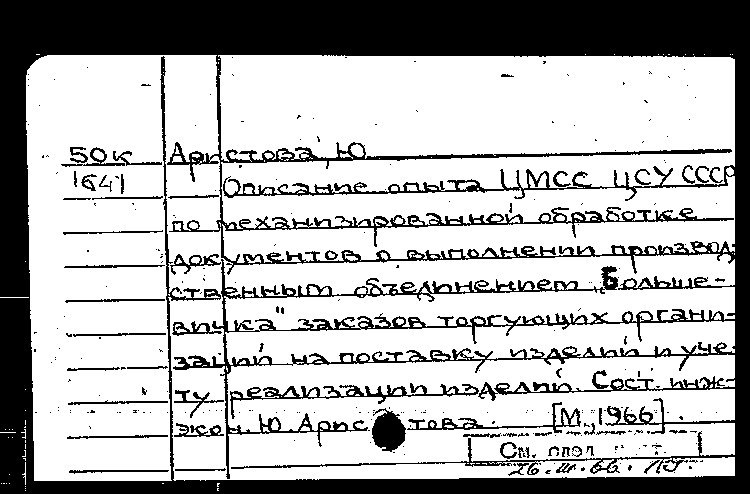 50к Аристова, Ю
1641 Описание опыта ЦМСС ЦСУ СССР
по механизированной обработке
документов о выполнении производ-
ственным объединением „Больше-
вичка" заказов торгующих органи-
заций на поставку изделий и уче-
ту реализации изделий. Сост. инж-
экон. Ю. Аристова. [М., 1966].
См.